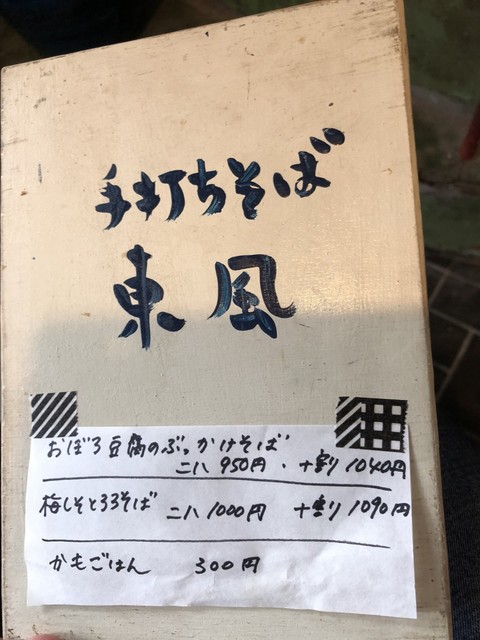 手打ちそば
東風
おぼろ豆腐のぶっかけそば
二八 950円 ・ 十割 1040円
梅しそとろろそば 二八 1000円 十割 1090円
かもごはん 300円